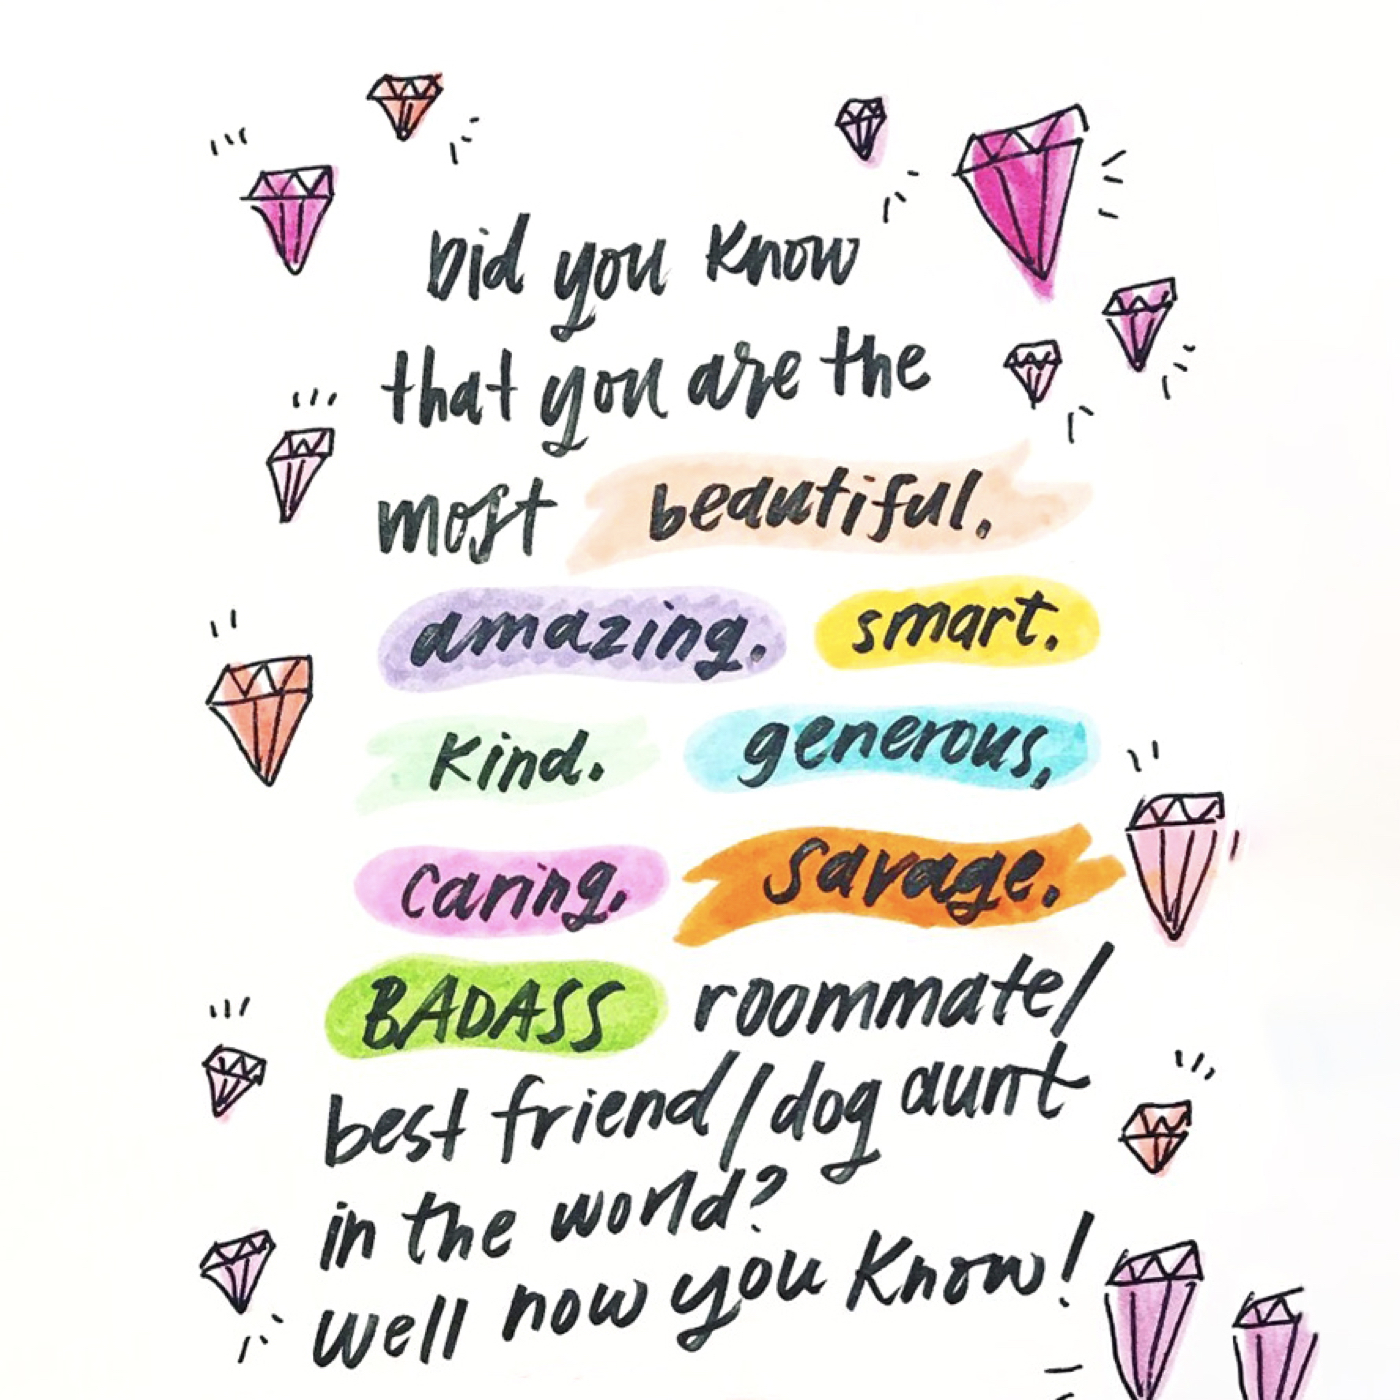 Did you know
that you are the
most beautiful.
amazing. smart.
kind. generous,
caring. savage.
BADASS roommate/
best friend/dog aunt
in the world?
well now you know!